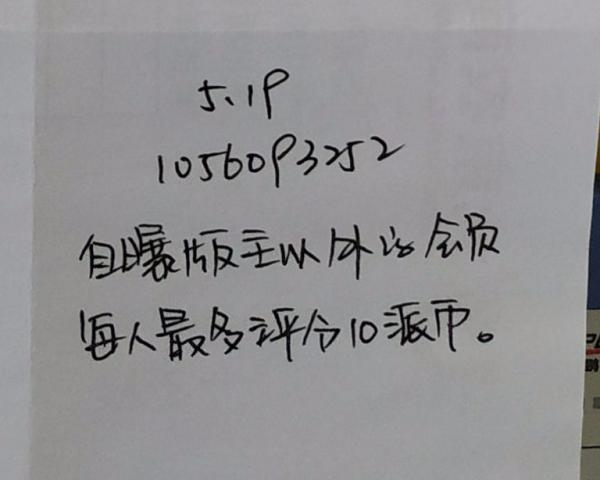 5.19
1056093252
自曝版主以外的会员
每人最多评分10派币。